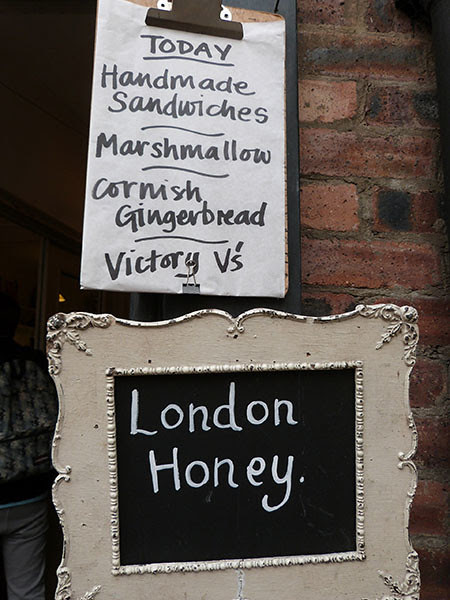 TODAY
Handmade
Sandwiches
Marshmallow
Cornish
Gingerbread
Victory V's
London
Honey.